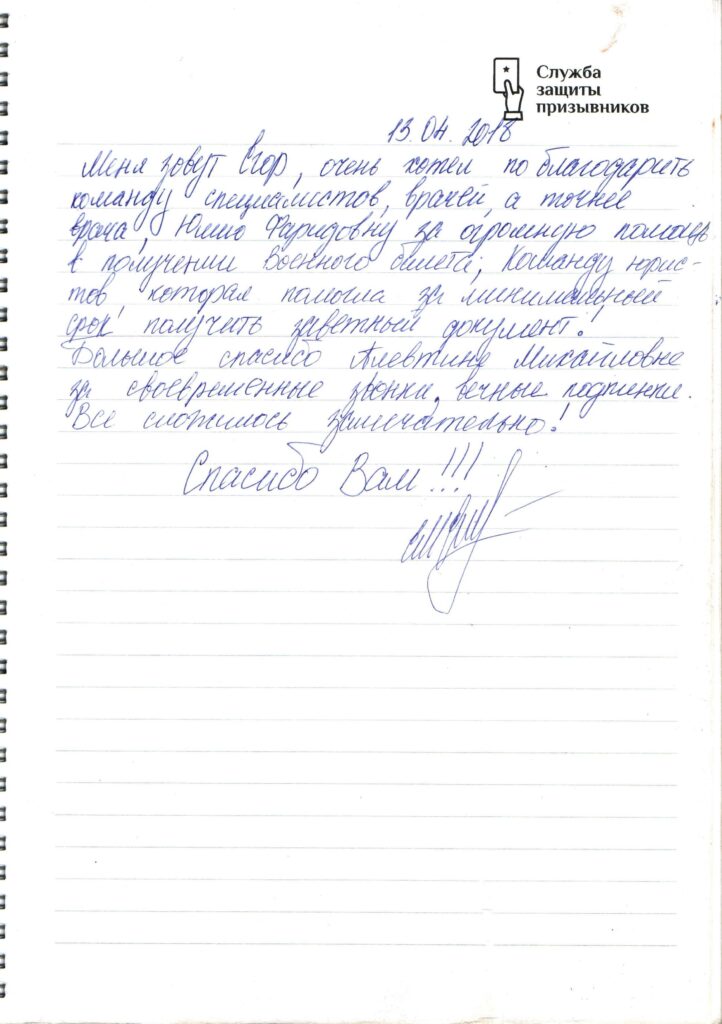 Служба
защиты
призывников
13.04.2018
Меня зовут Егор, очень хотел по благодарить
команду специалистов, врачей, а точнее
врача, Юлию Фаридовну за огромную помощь
в получении военного билета; Команду юрис-
тов, которая помогла за минимальный
срок получить заветный документ!
Большое спасибо Алевтине Михайловне
за своевременные звонки, вечные
Все сложилось замечательно!
Спасибо Вам!!!